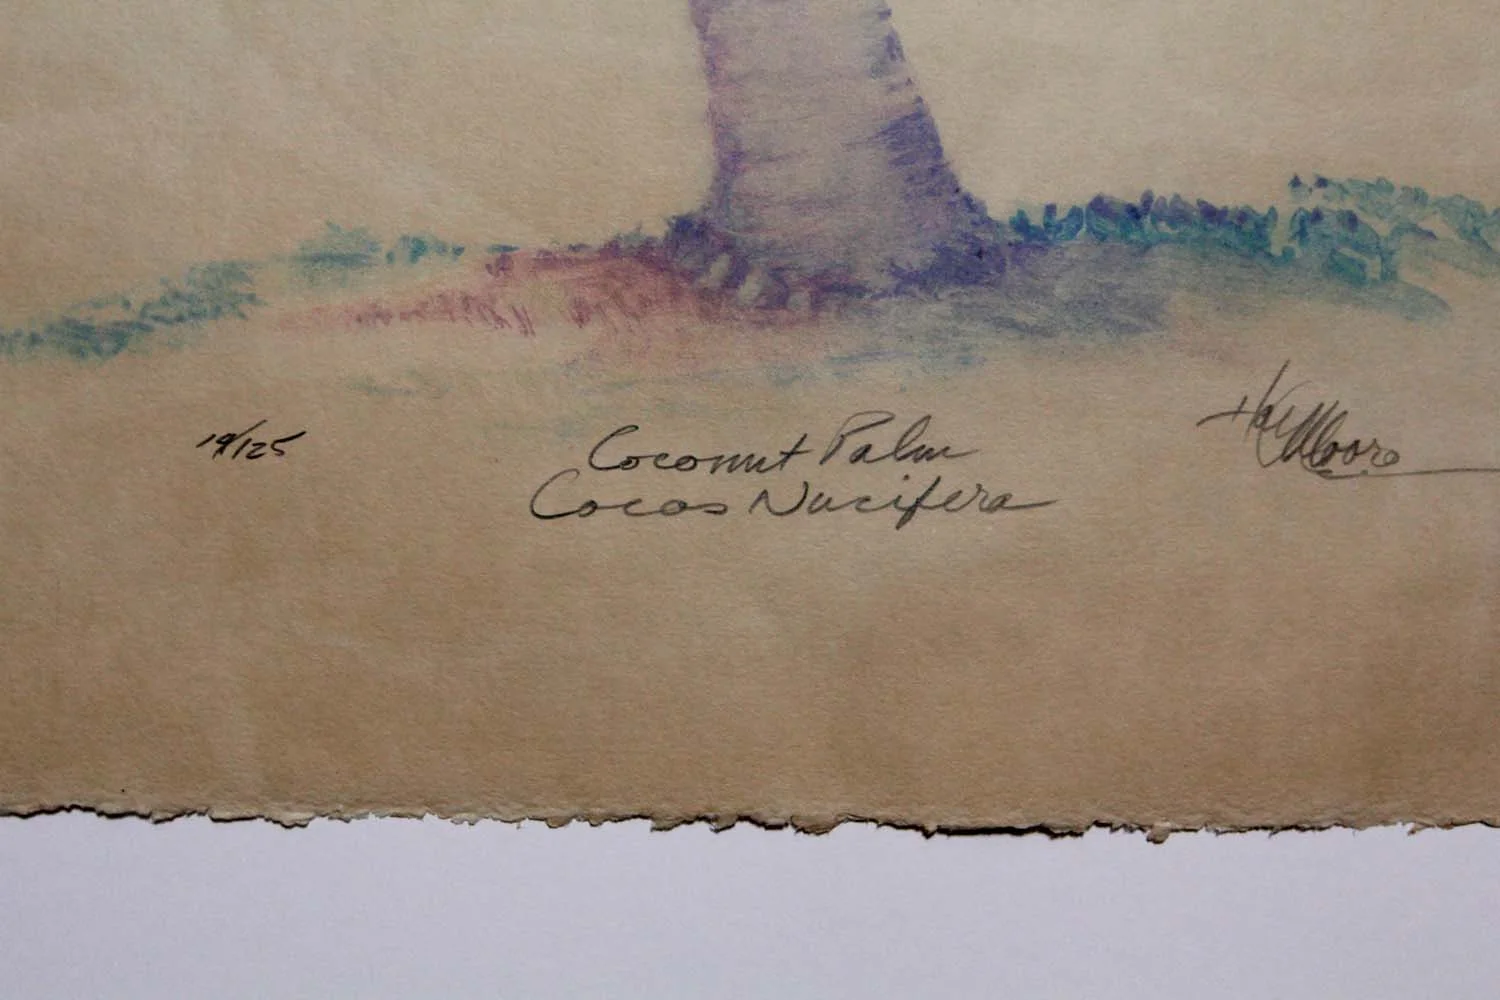 19/125
Coconut Palm
Cocos Nucifera
Moore